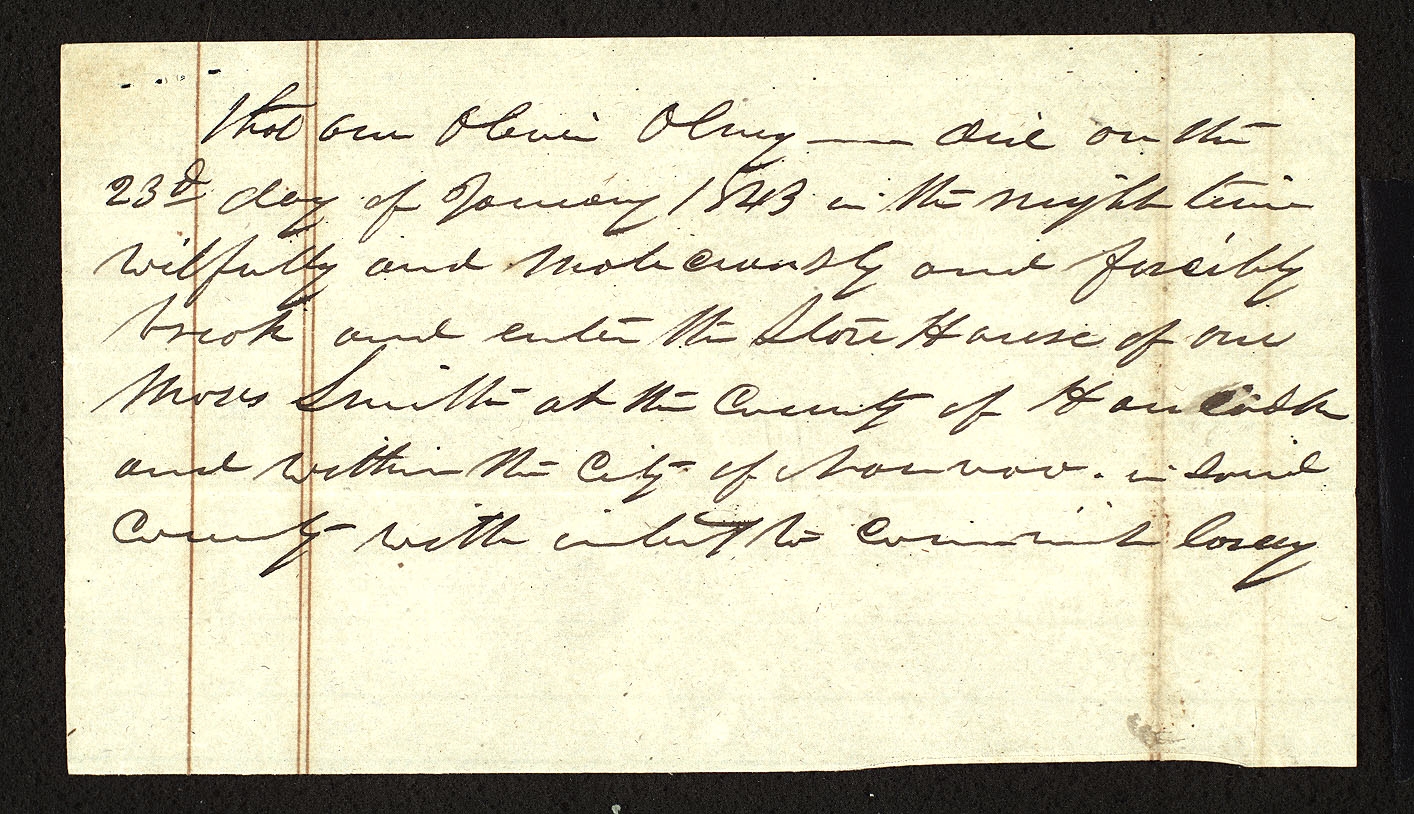 that one Oliver Olney — did on the
23d day of January 1843 in the night time
wilfully and maliciously and forcibly
break and enter the Store House of one
Moses Smith at the County of Hancock
and within the City of Nauvoo. in said
County with intent to commit larceny